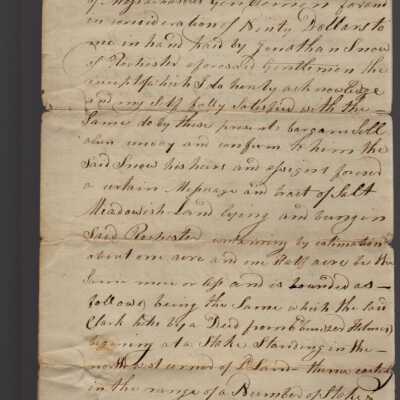 of Massachusetts Gentlemen for and
in consideration of Ninty Dollars to
me in hand paid by Jonathan Snow
of Rochester aforesaid Gentlemen the
receipt of which I do hereby acknowledge
and my self fully satisfied with the
Same do by these presents bargain Sell
alien and confirm to him the
said Snow his heirs and assigns forever
a certain Message and tract of Salt
Meadowish Land lying and being in
Said Rochester containing by estimation
about one acre and one Half acre be the
same more or less and is bounded as
follows being the Same which the said
Clark by a Deed from Holmes
begining at a Stake Standing in the
north west of Sd Land thence
in the range of a Number of Stakes